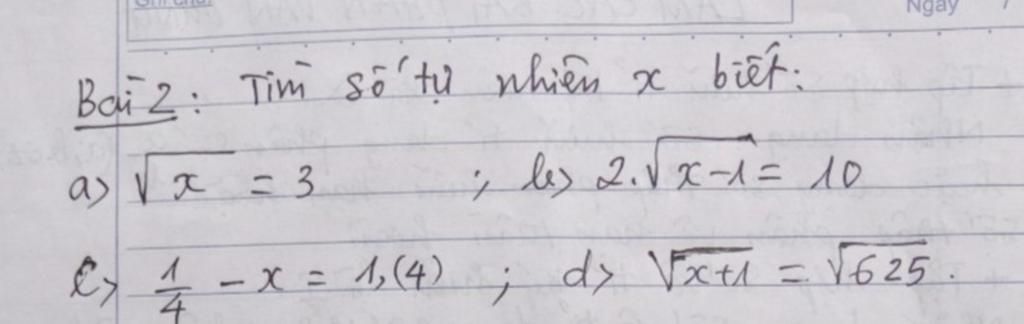 Ngày
Bài 2: Tìm số tự nhiên x biết:
a) √x = 3 ; b) 2.√(x-1) = 10
c) 1/4 - x = 1,(4) ; d) √(x+1) = √625.